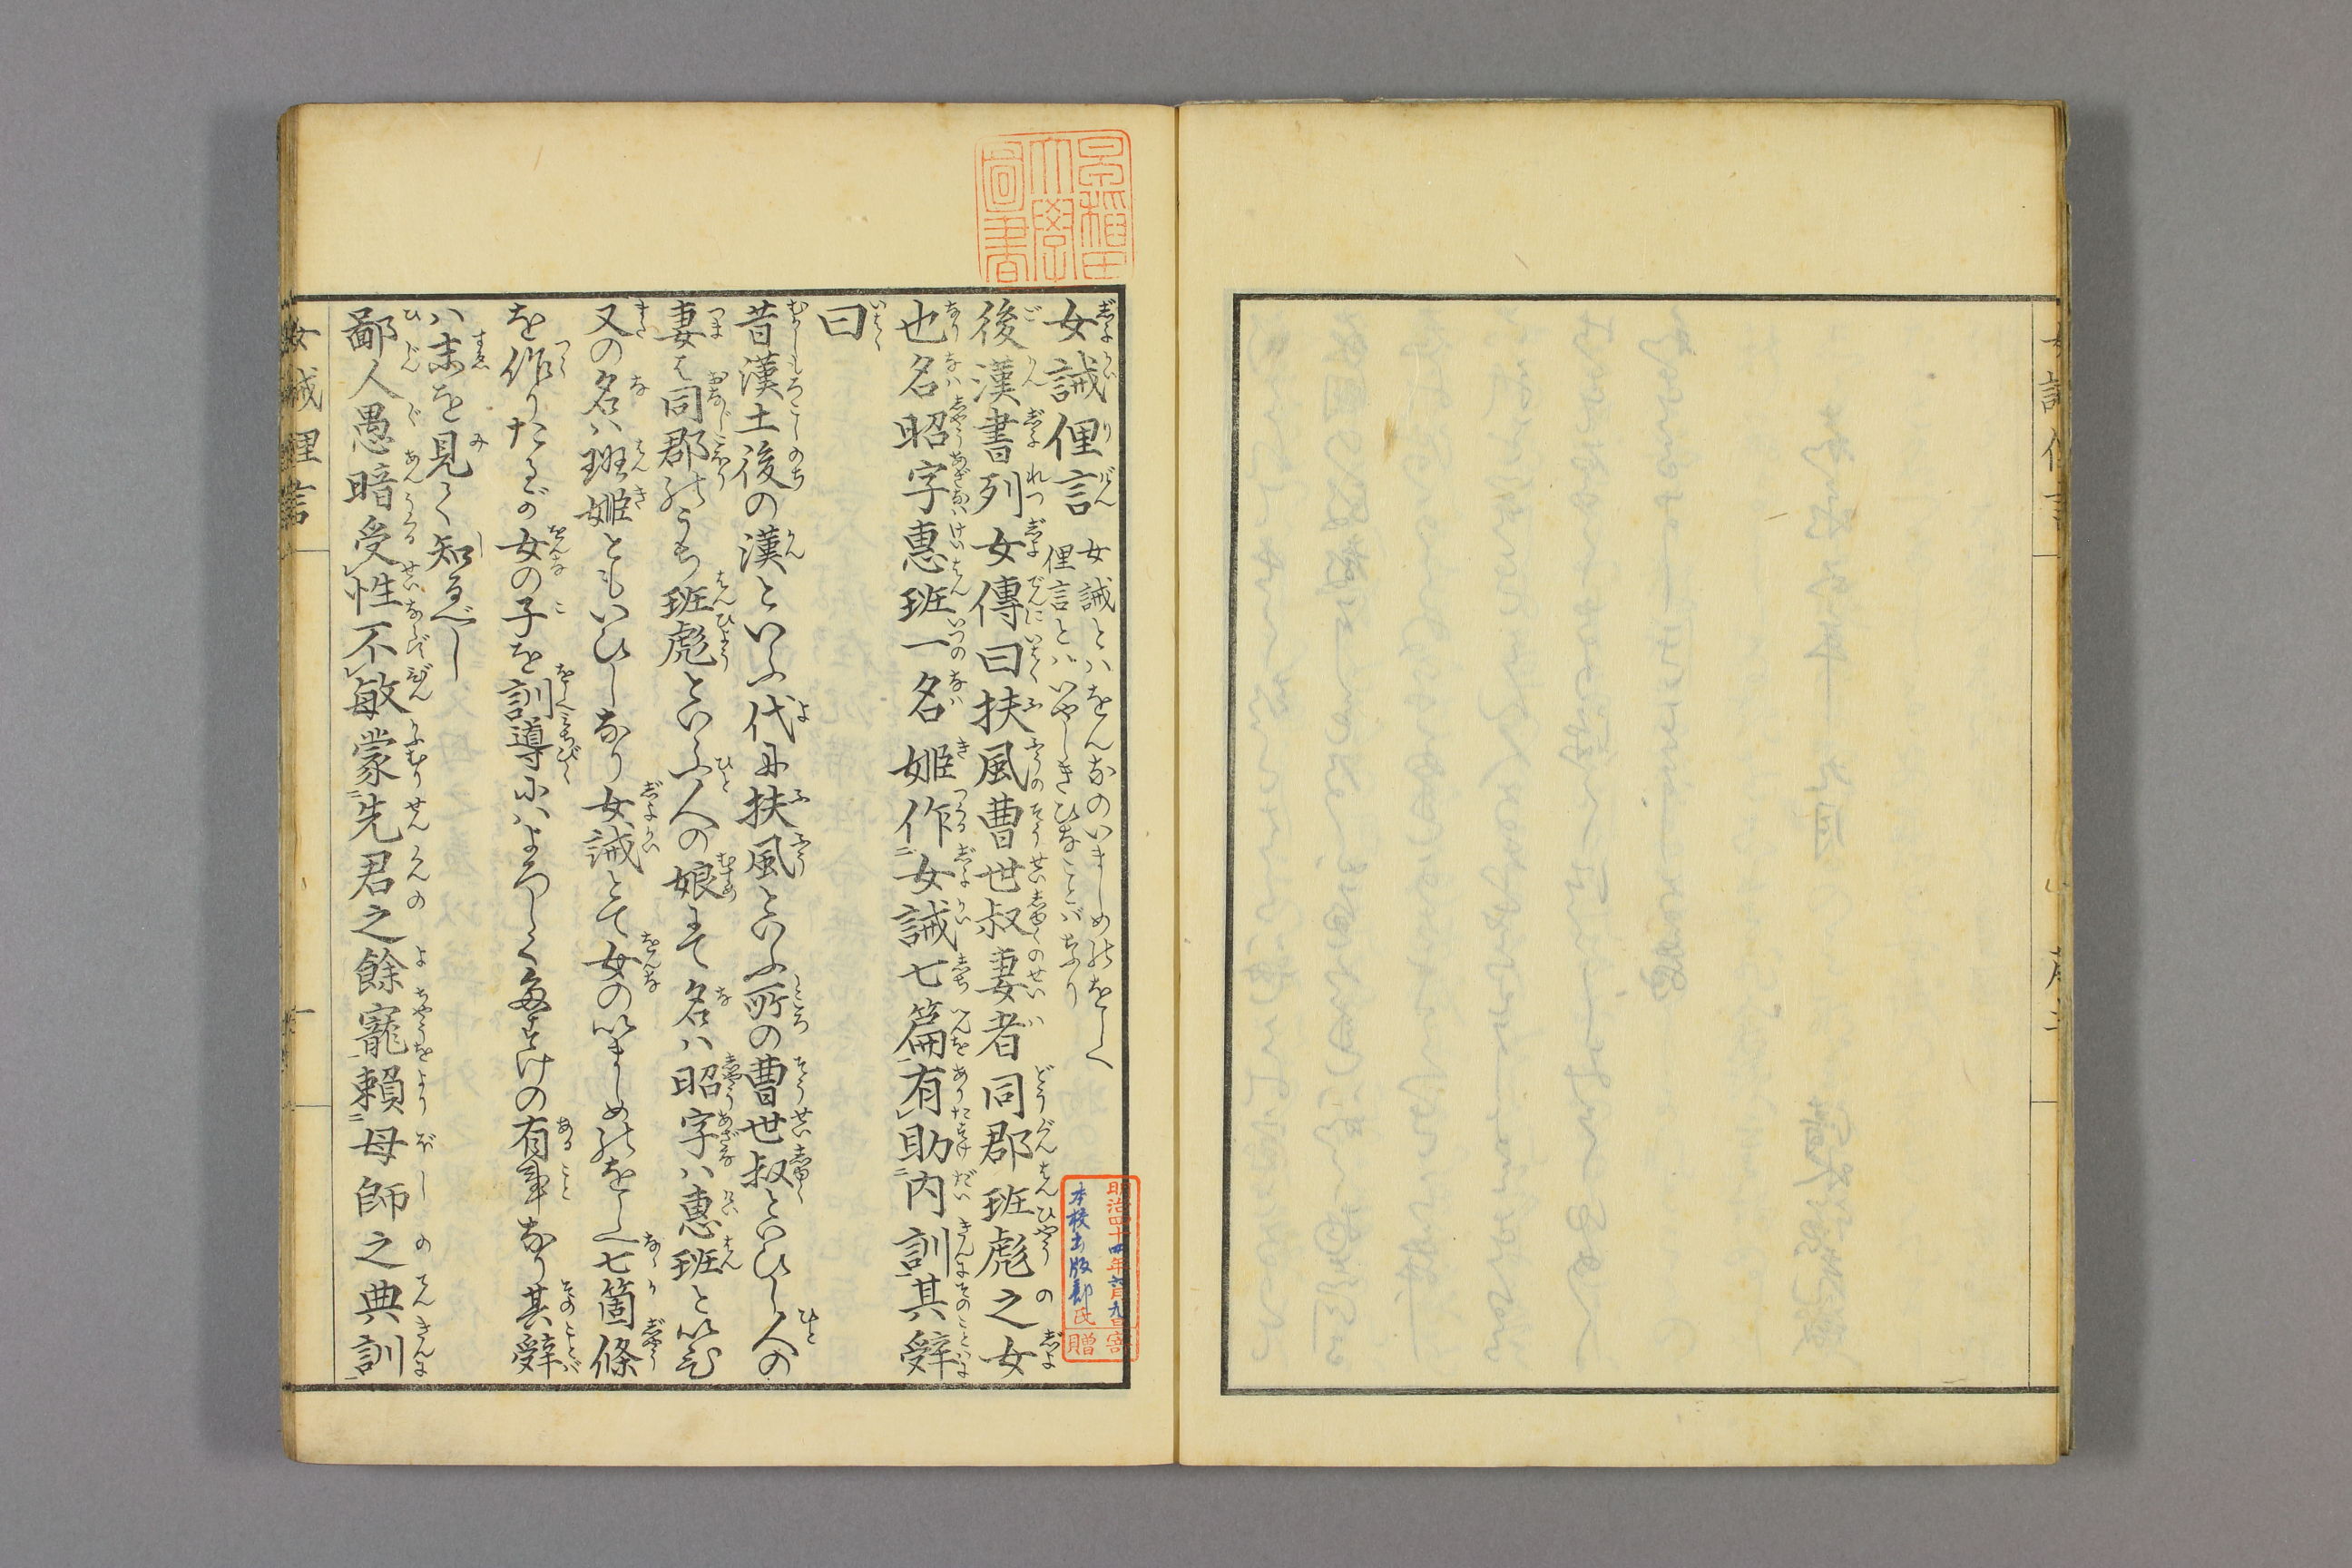 女誡俚言
女誡とハをんなのいましめのをしへ
俚言とハいやしきひなことバなり
後漢書列女傳曰扶風曹世叔妻者同郡班彪之女
也名昭字惠班一名姬作女誡七篇有助内訓其辭
曰
昔漢土後の漢といふ代に扶風といふ所の曹世叔といひし人の
妻は同郡のうち班彪といふ人の娘にて名ハ昭字ハ惠班といひ
又の名ハ班姬ともいひしなり女誡とて女のいましめのをしへ七箇條
を作りたるが女の子を訓導にハよろしくたすけの有事なり其辭
ハ末を見て知るべし
鄙人愚暗受性不敏蒙先君之餘寵賴母師之典訓
女誡俚言
一
早稲田大學圖書
明治四十四年六月九日寄贈
本校出版部氏